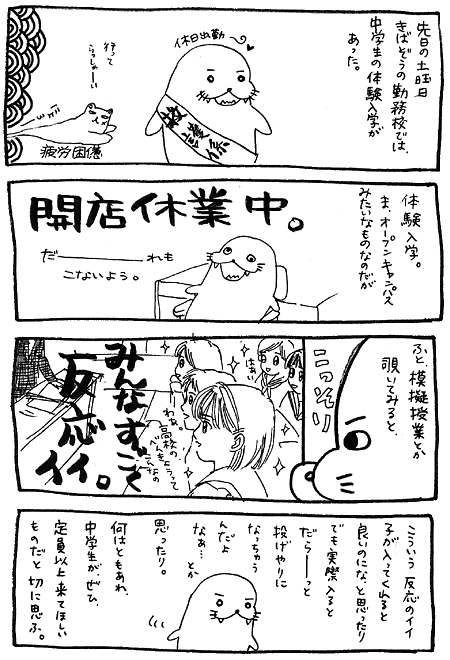 先日の土曜日
きばぞうの勤務校では、
中学生の体験入学が
あった。
休日出勤
行って
らっしゃーい
疲労困憊
体験入学。
ま、オープンキャンパス
みたいなものなのだが
開店休業中。
だーーーれも
こないよう。
ふと、模擬授業とか
覗いてみると、
こっそり
はぁい
わぁ、高校の
べんきょうって
みんなすごく
反応イイ。
こういう反応のイイ
子が入ってくれると
良いのにな、と思ったり
でも実際入ると
だらーーっと
投げやりに
なっちゃう
んだよ
なぁ…とか
思ったり。
何はともあれ、
中学生が、ぜひ、
定員以上来てほしい
ものだと切に思ふ。